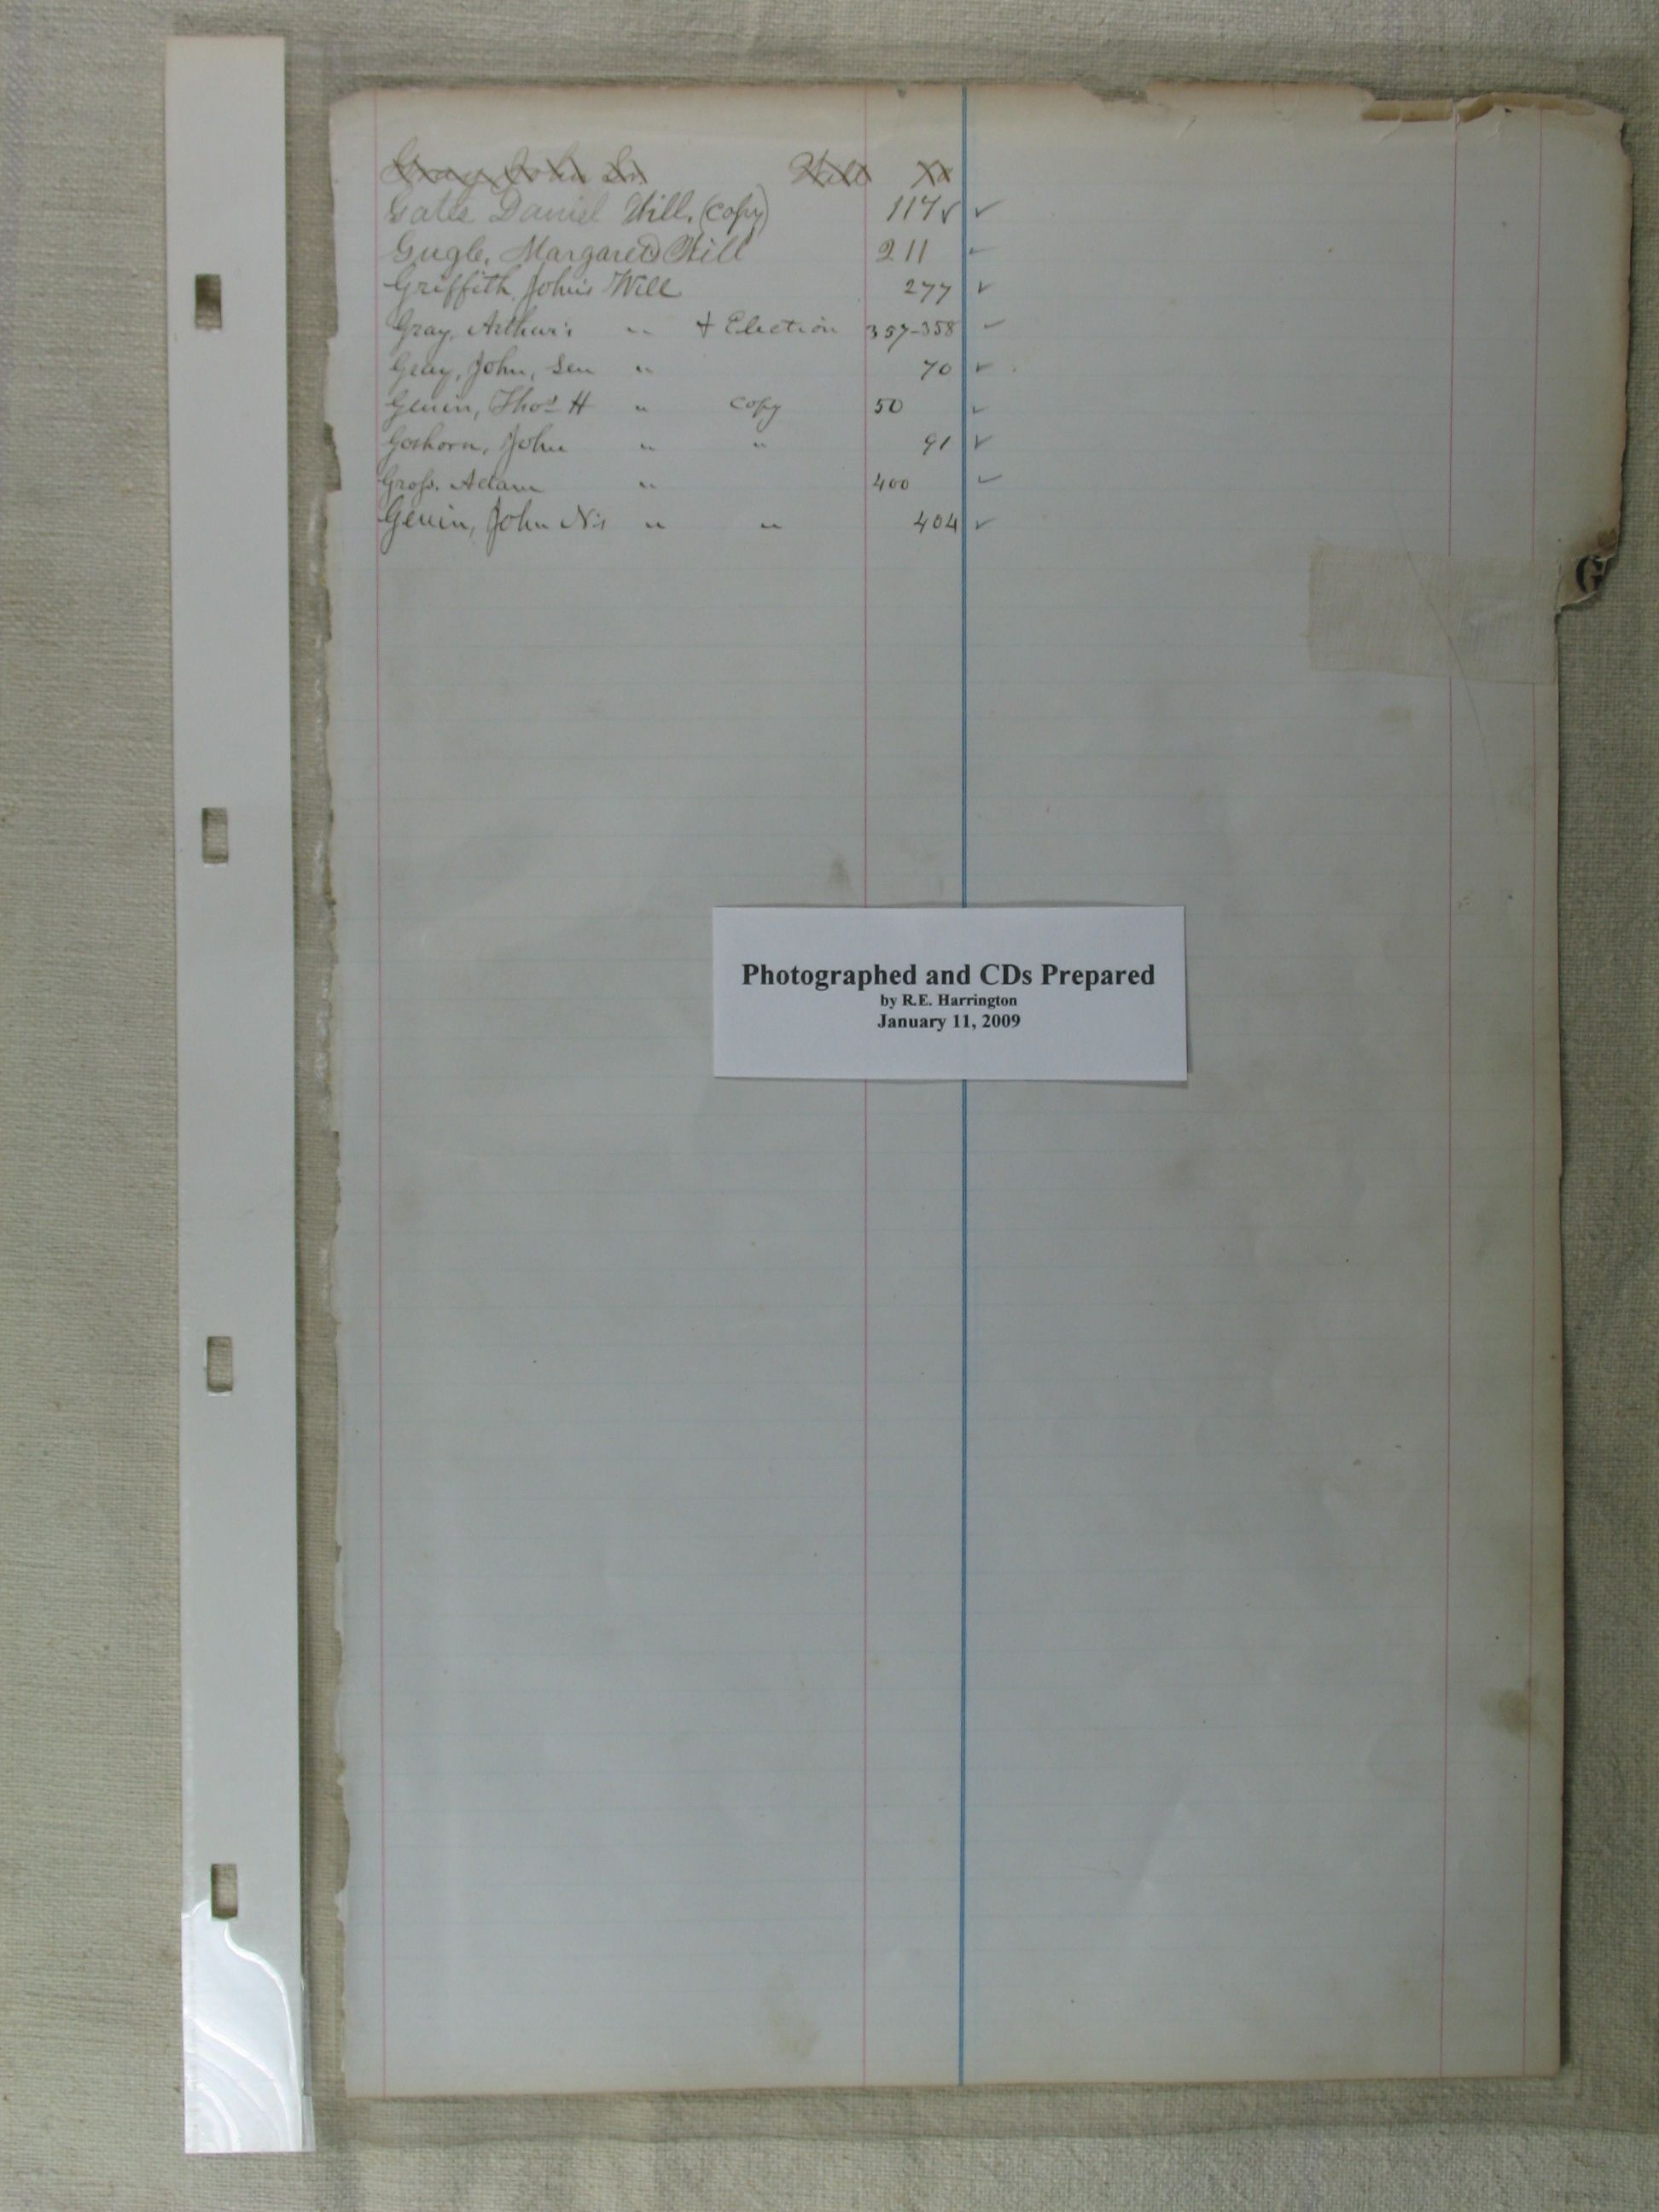 Gray John Sr. Will
Gates Daniel Will. (Copy) 117 ✓ ✓
Gugle, Margarets Will 211 ✓
Griffith, John's Will 277 ✓
Gray, Arthur's " + Election 357-358 ✓
Gray, John, Sen " 70 ✓
Genin, Thos H " Copy 50 ✓
Goshorn, John " " 91 ✓
Gross, Adam " 400 ✓
Genin, John N's " " 404 ✓
G
Photographed and CDs Prepared
by R.E. Harrington
January 11, 2009